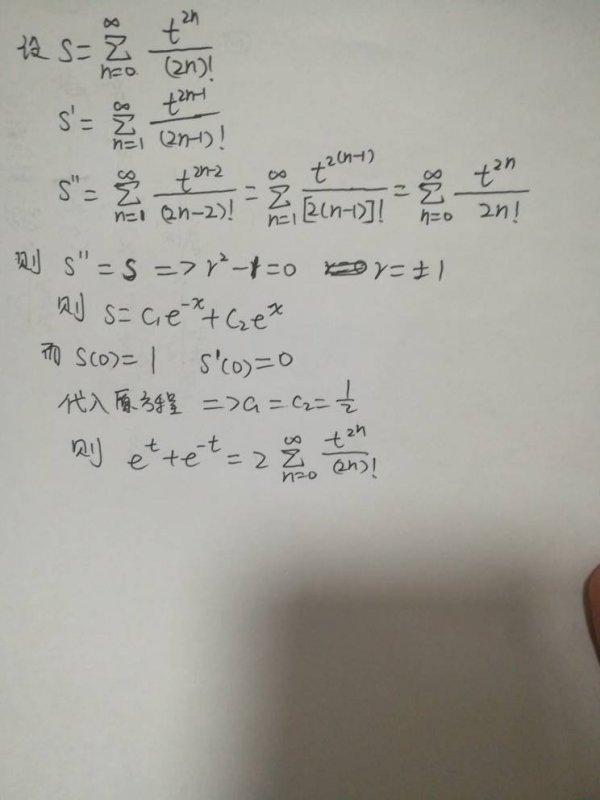 设 S = ∑_{n=0}^{∞} t^{2n}/(2n)!
S' = ∑_{n=1}^{∞} t^{2n-1}/(2n-1)!
S'' = ∑_{n=1}^{∞} t^{2n-2}/(2n-2)! = ∑_{n=1}^{∞} t^{2(n-1)}/[2(n-1)]! = ∑_{n=0}^{∞} t^{2n}/2n!
则 S'' = S => r²-1=0 r=±1
则 S = C₁e^{-x}+C₂e^{x}
而 S(0)=1 S'(0)=0
代入原方程 => C₁ = C₂ = 1/2
则 e^{t}+e^{-t} = 2 ∑_{n=0}^{∞} t^{2n}/(2n)!